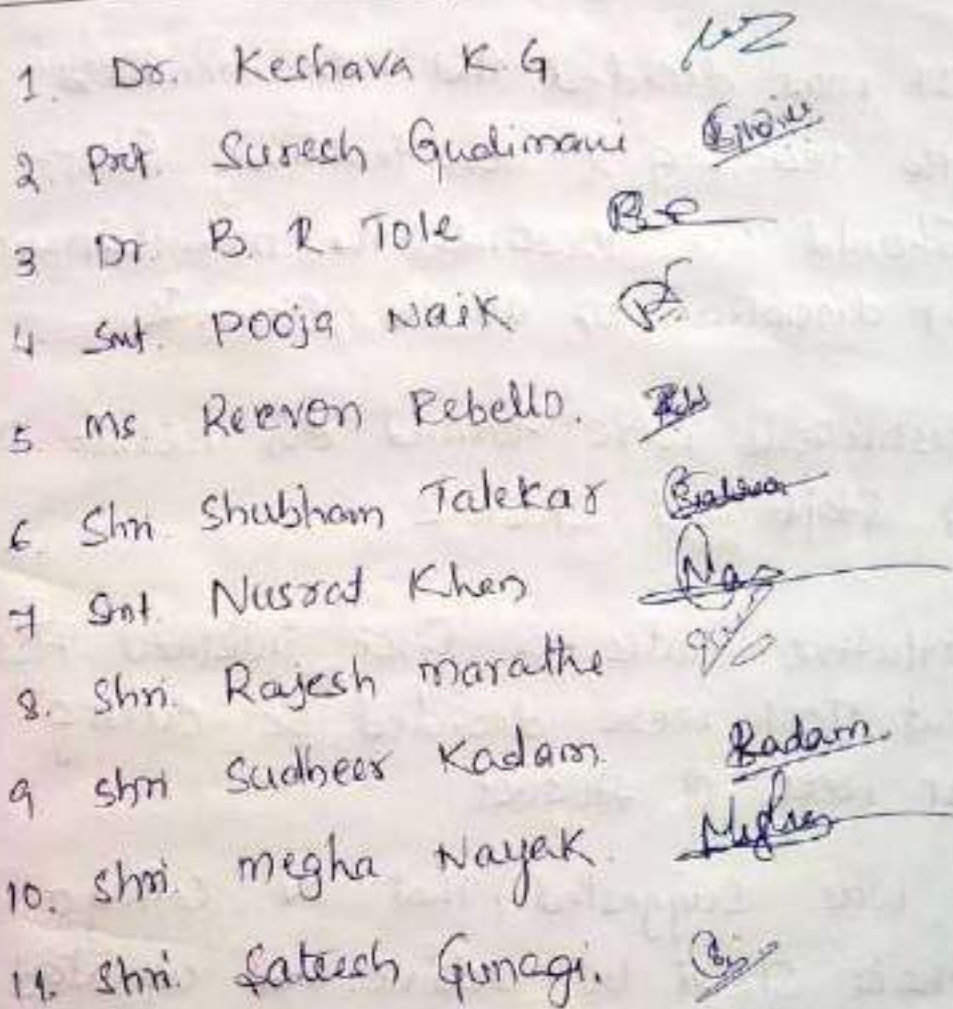 1. Dr. Keshava K.G
2. Prf. Suresh Gudimani
3 Dr. B. R. Tole
4 Smt. Pooja Naik
5 Ms. Reevon Rebello.
6. Shri. Shubham Talekar
7 Smt. Nusrat Khan
8. Shri. Rajesh Marathe
9 Shri Sudheer Kadam. Kadam.
10. Shri. Megha Nayak
11. Shri. Sateesh Gunagi.